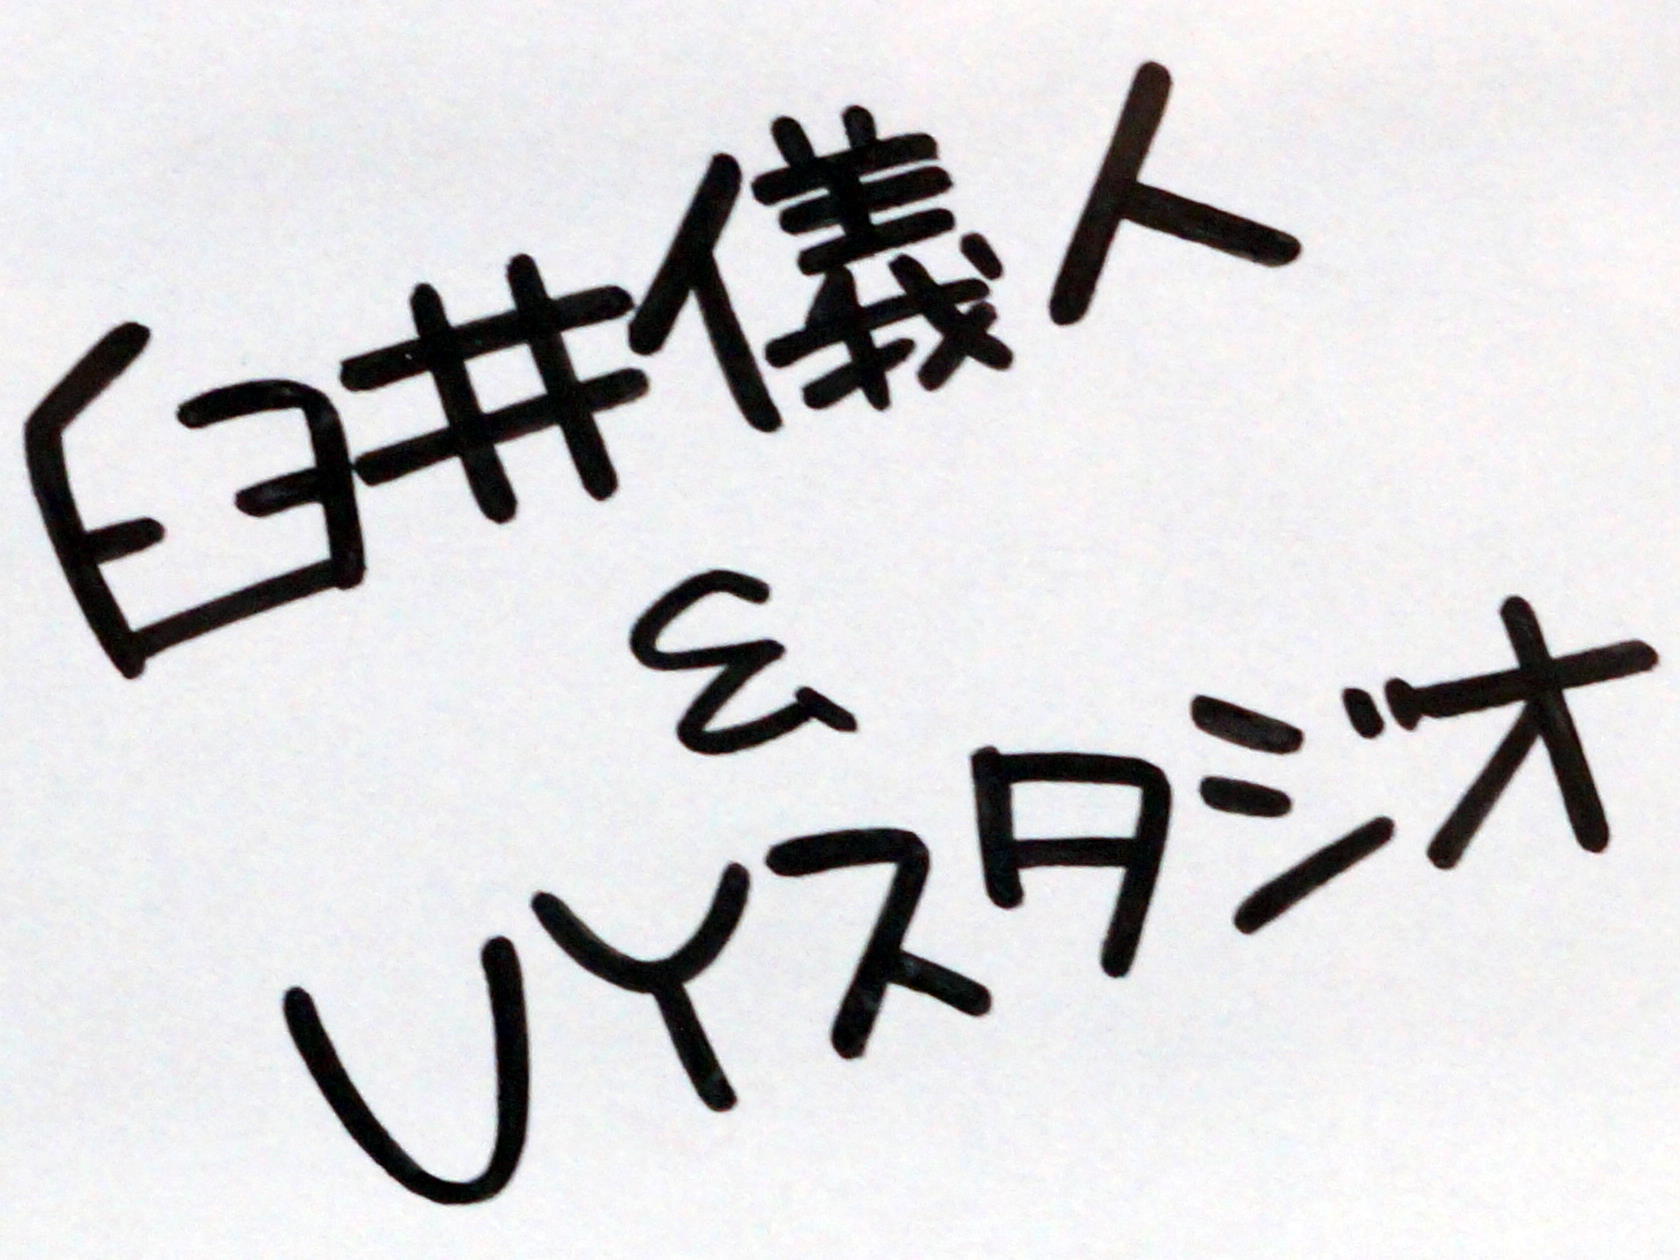 臼井儀人
&
UYスタジオ